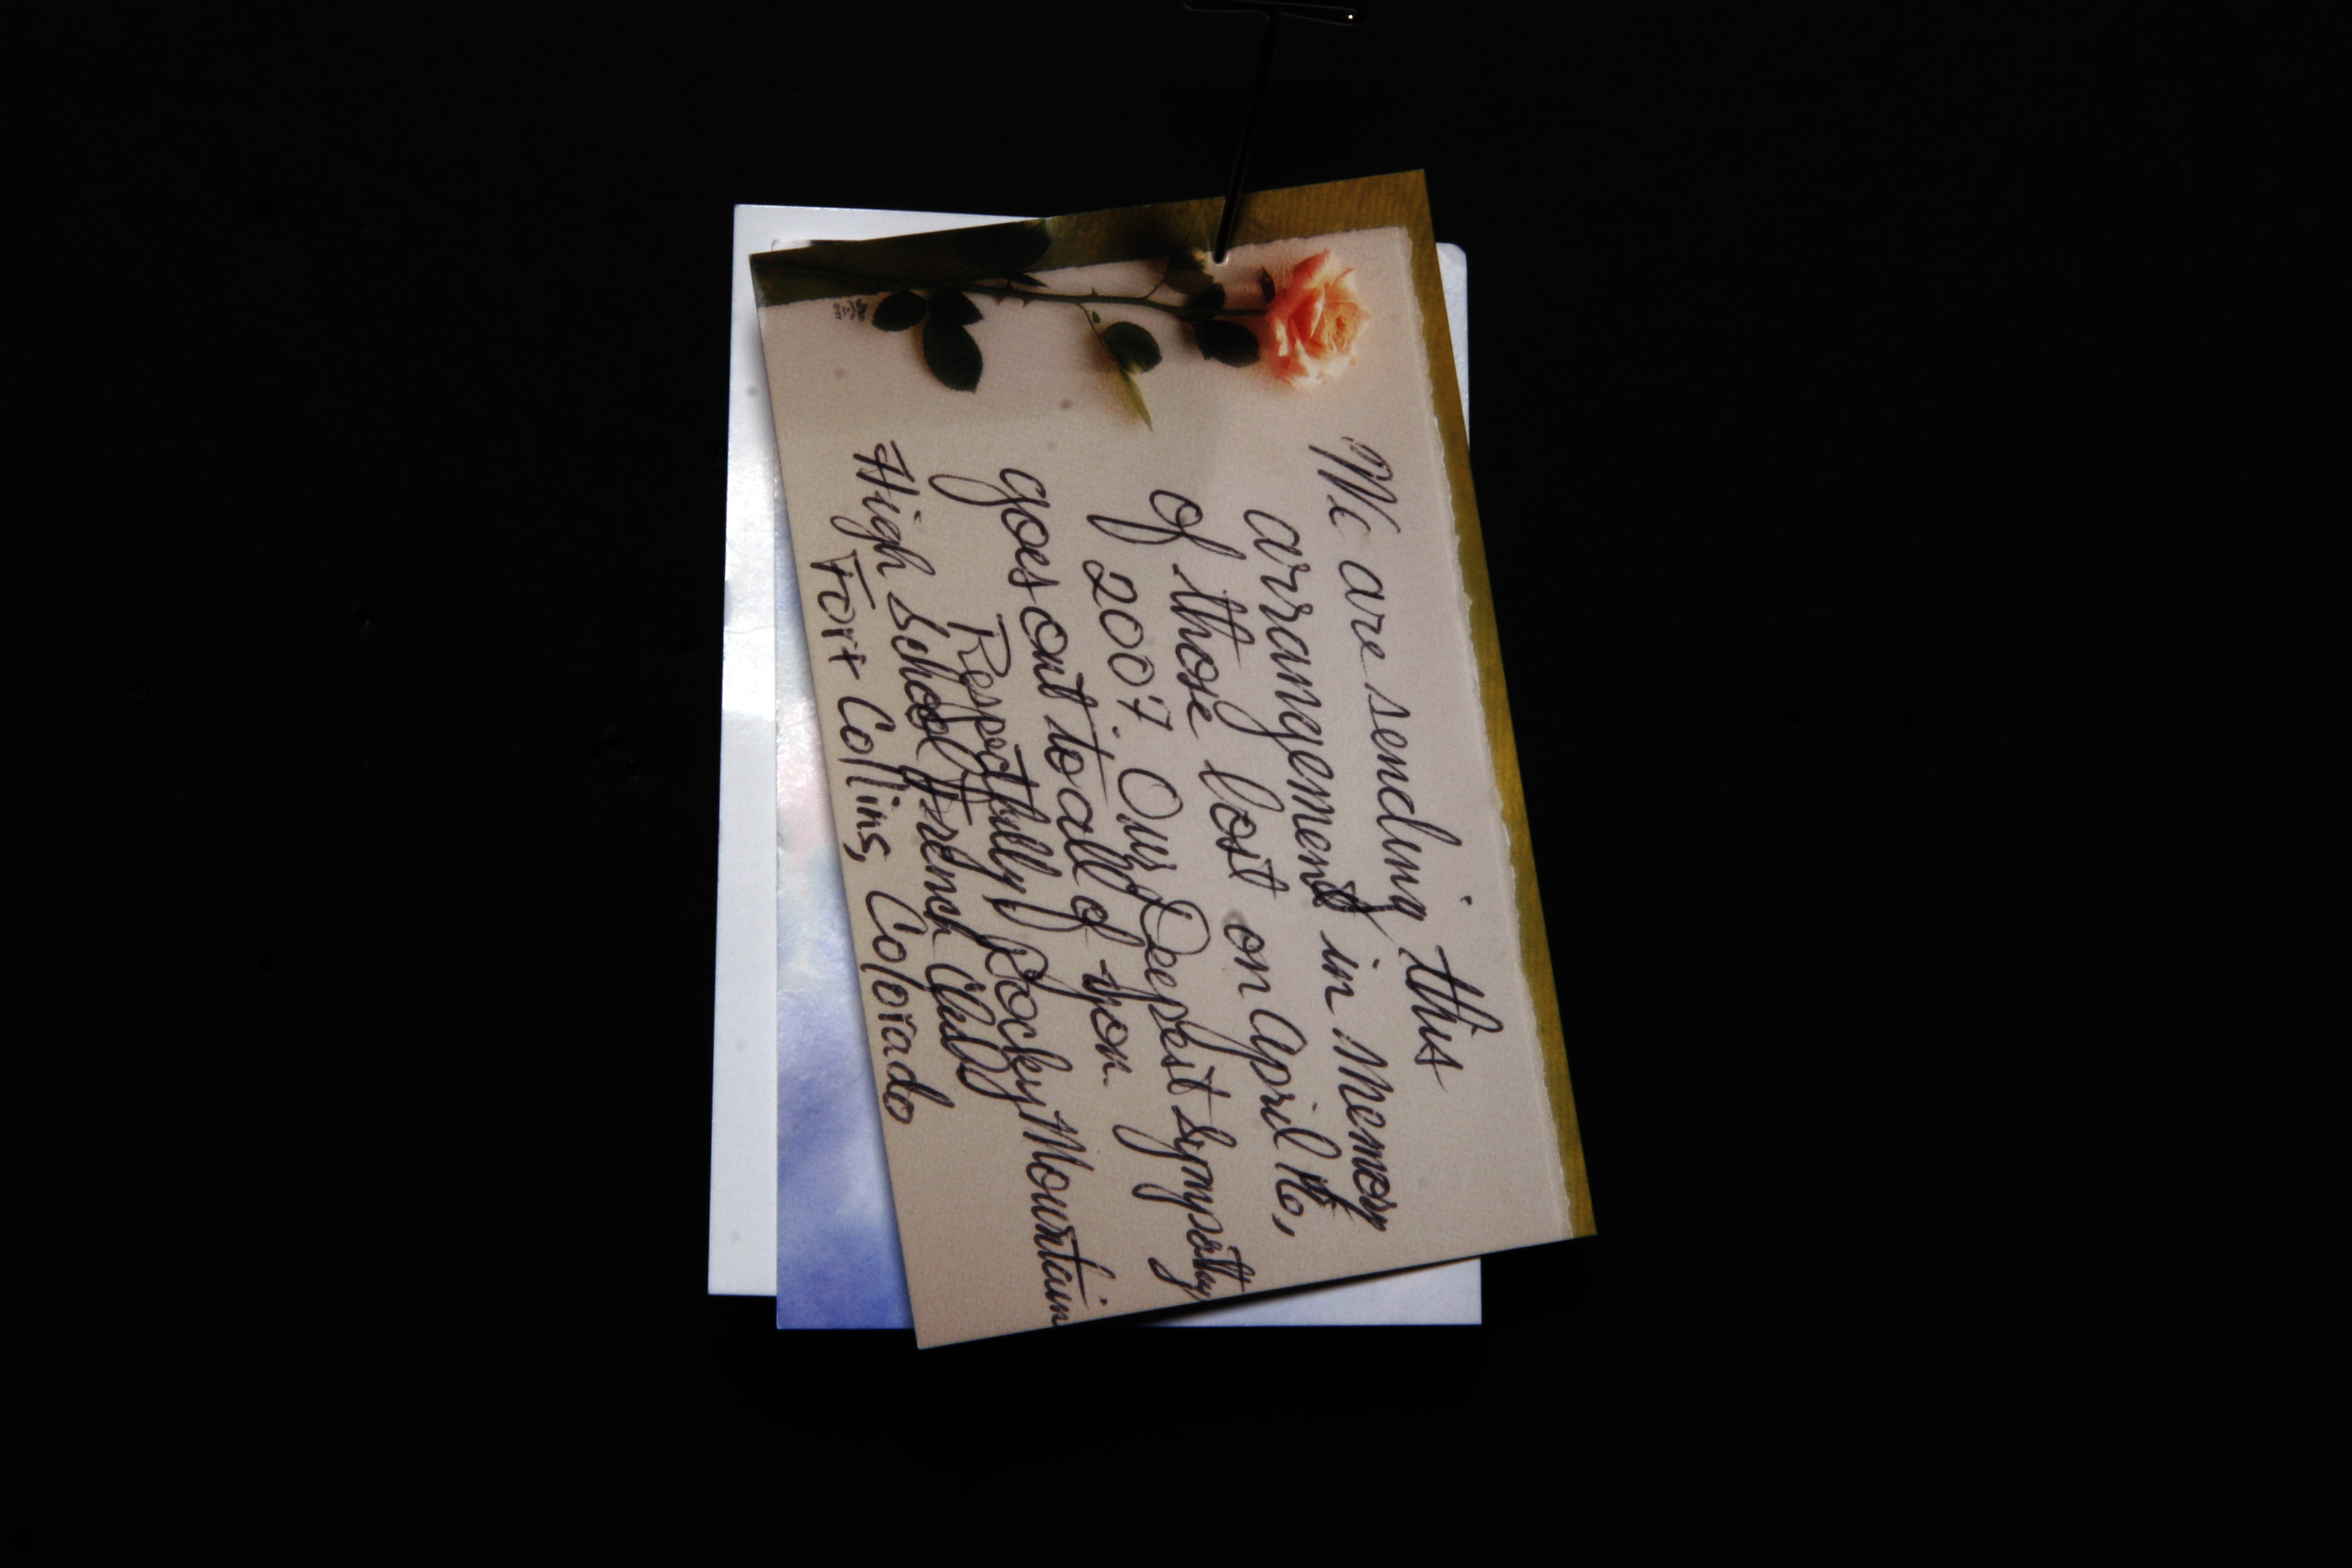 We are sending this
arrangement in Memory
of those lost on April 16,
2007. Our Deepest Sympathy
goes out to all of you.
Respectfully Rocky Mountain
High School French Club
Fort Collins, Colorado